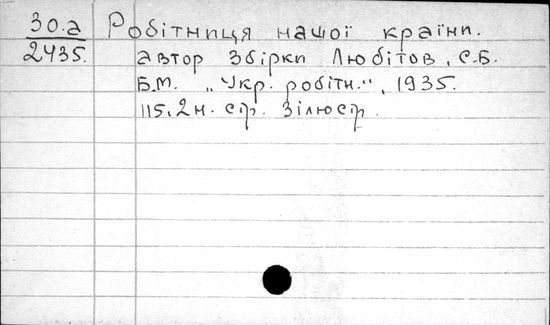 30.а Робітниця нашої країни.
2435. автор збірки Любітов, С.Б.
Б.М. „Укр. робітн.“, 1935.
115, 2н. стр. Зілюстр.